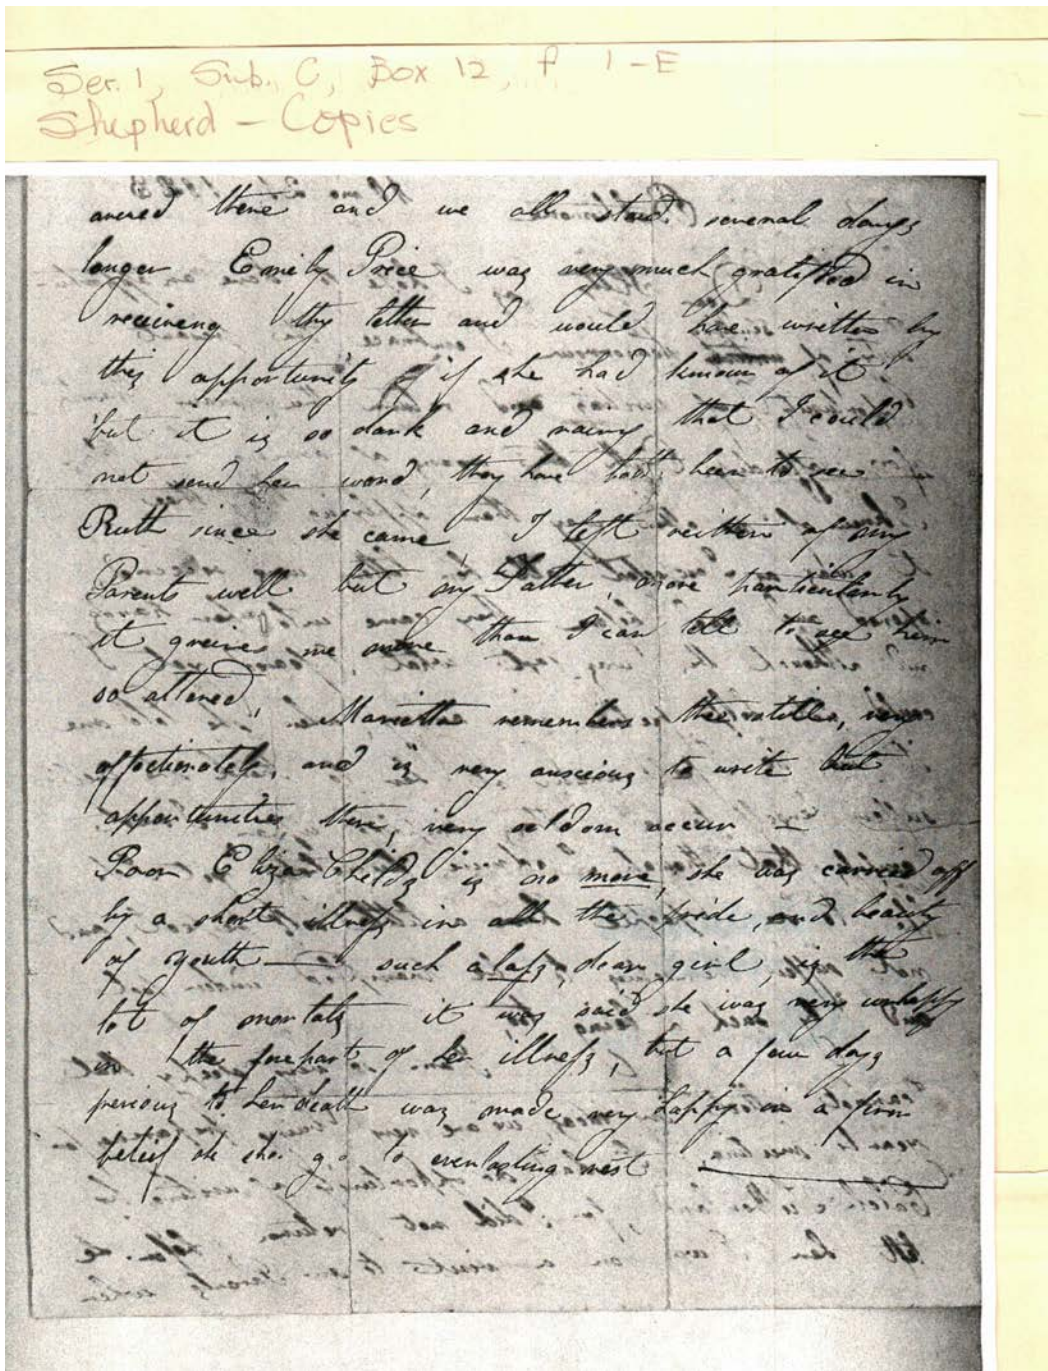 Ser. 1, Sub. C, Box 12, f 1-E
Shepherd - Copies
there and we all staid several days
longer Emily Price was very much gratified in
receiveng thy letter and would have written by
this opportunity if she had known of it
but it is so dark and rainy that I could
not send her word, they have both been to see
Ruth since she came, I left neither of my
Parents well but my Father, more particularly
it greives me more than I can tell to see him
so altered, Marietta remembers thee still, very
affectionately, and is very anxious to write but
oppertunities there, very seldom occur —
Poor Eliza Childs is no more, she was carried off
by a short illness in all the pride, and beauty
of youth — such alass, dear girl, is the
lot of mortals it was said she was very unhappy
in the forepart of her illness, but a few days
previous to her death was made very happy in a firm
belief she go to everlasting rest